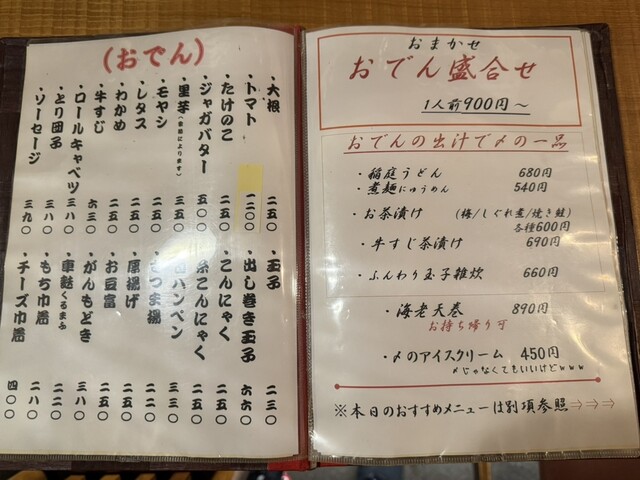 (おでん)
・大根 二五〇
・トマト 二〇〇
・たけのこ 二五〇
・ジャガバター 五〇〇
・里芋(季節によります) 三五〇
・モヤシ 二五〇
・レタス 二五〇
・わかめ 二五〇
・牛すじ 六三〇
・ロールキャベツ 三八〇
・とり団子 三八〇
・ソーセージ 三九〇
・玉子 二三〇
・出し巻き玉子 六六〇
・こんにゃく 二五〇
糸こんにゃく 二五〇
ハンペン 三三〇
さつま揚 二二〇
・厚揚げ 二五〇
・お豆富 二五〇
・がんもどき 三八〇
・車麩くるまふ 二二〇
・もち巾着 二八〇
・チーズ巾着 四〇〇
おまかせ
おでん盛合せ
1人前900円〜
おでんの出汁で〆の一品
・稲庭うどん 680円
・煮麺にゅうめん 540円
・お茶漬け (梅/しぐれ煮/焼き鮭)
各種600円
・牛すじ茶漬け 690円
・ふんわり玉子雑炊 660円
・海老天巻 890円
お持ち帰り可
・〆のアイスクリーム 450円
〆じゃなくてもいいけどｗｗｗ
※本日のおすすめメニューは別項参照⇒⇒⇒